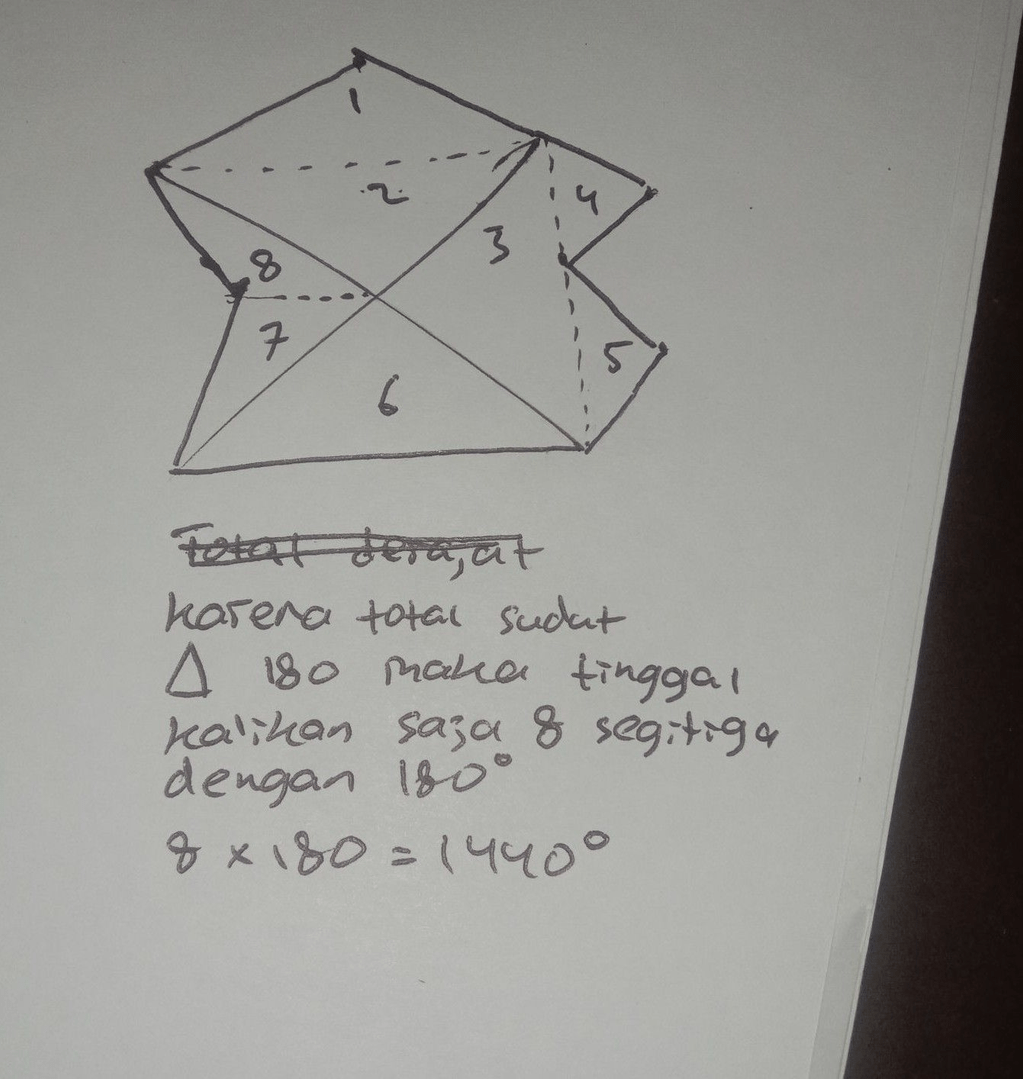 1
2
4
3
8
7
5
6
Total derajat
karena total sudut
Δ 180 maka tinggal
kalikan saja 8 segitiga
dengan 180°
8 × 180 = 1440°